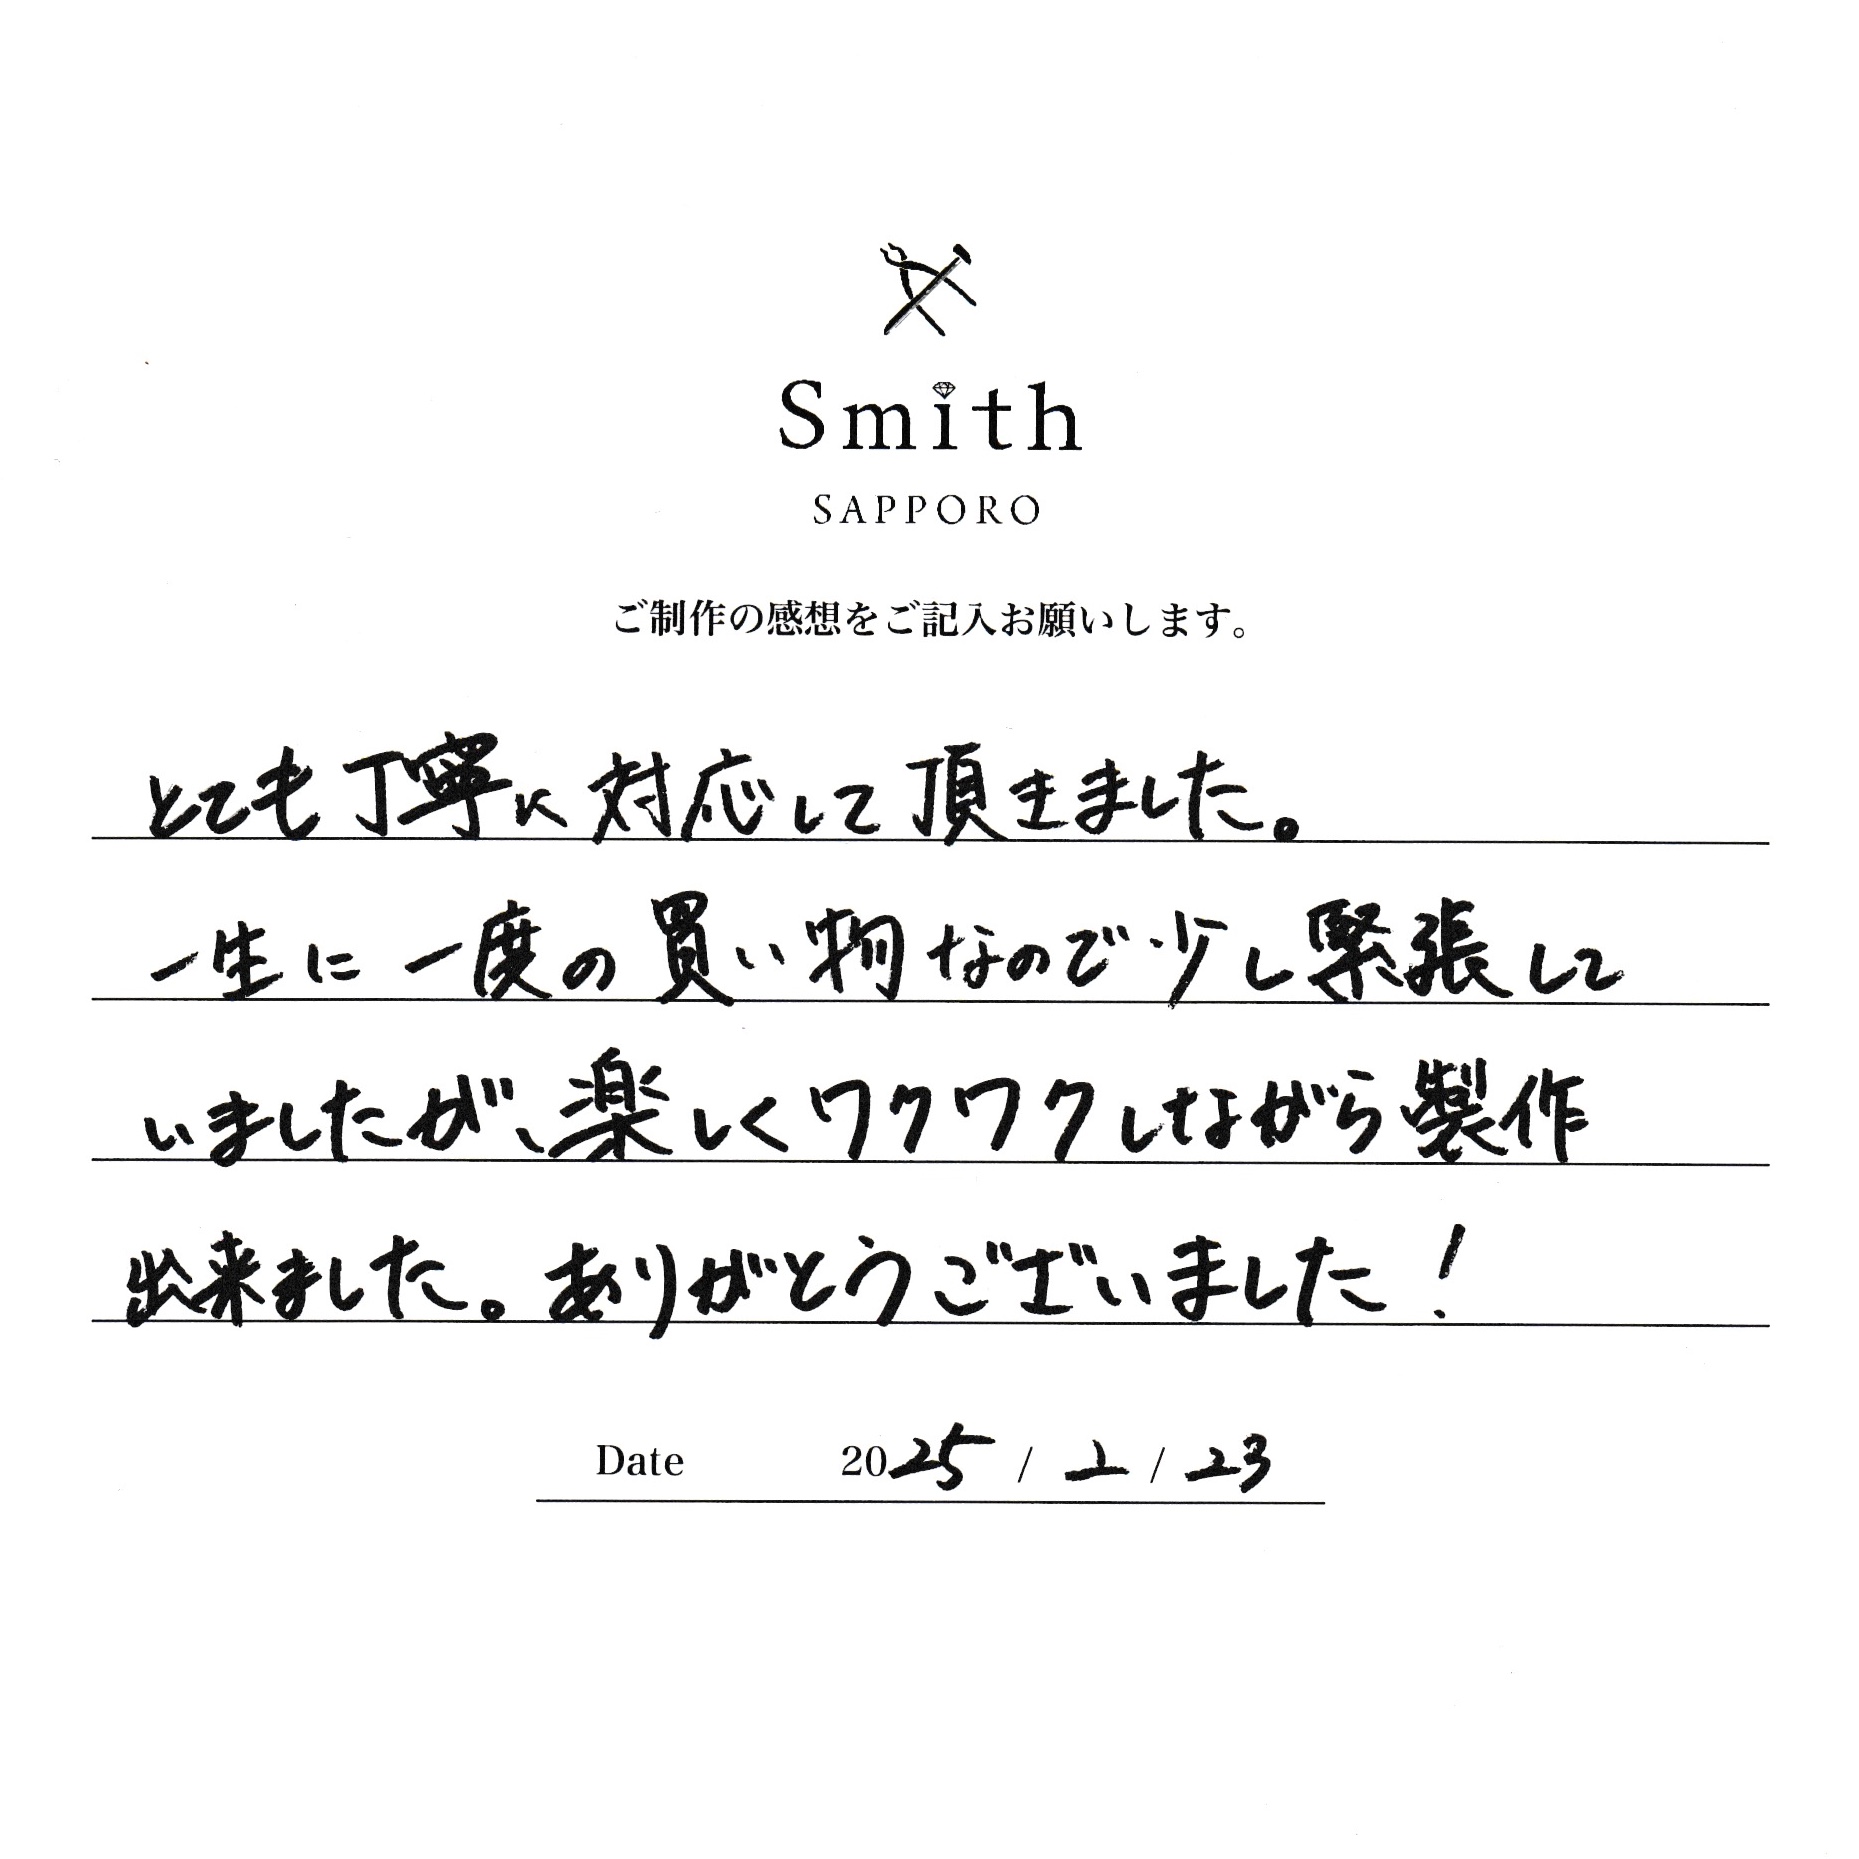 Smith
SAPPORO
ご制作の感想をご記入お願いします。
とても丁寧に対応して頂きました。
一生に一度の買い物なので少し緊張して
いましたが、楽しくワクワクしながら製作
出来ました。ありがとうございました!
Date 2025 / 2 / 23